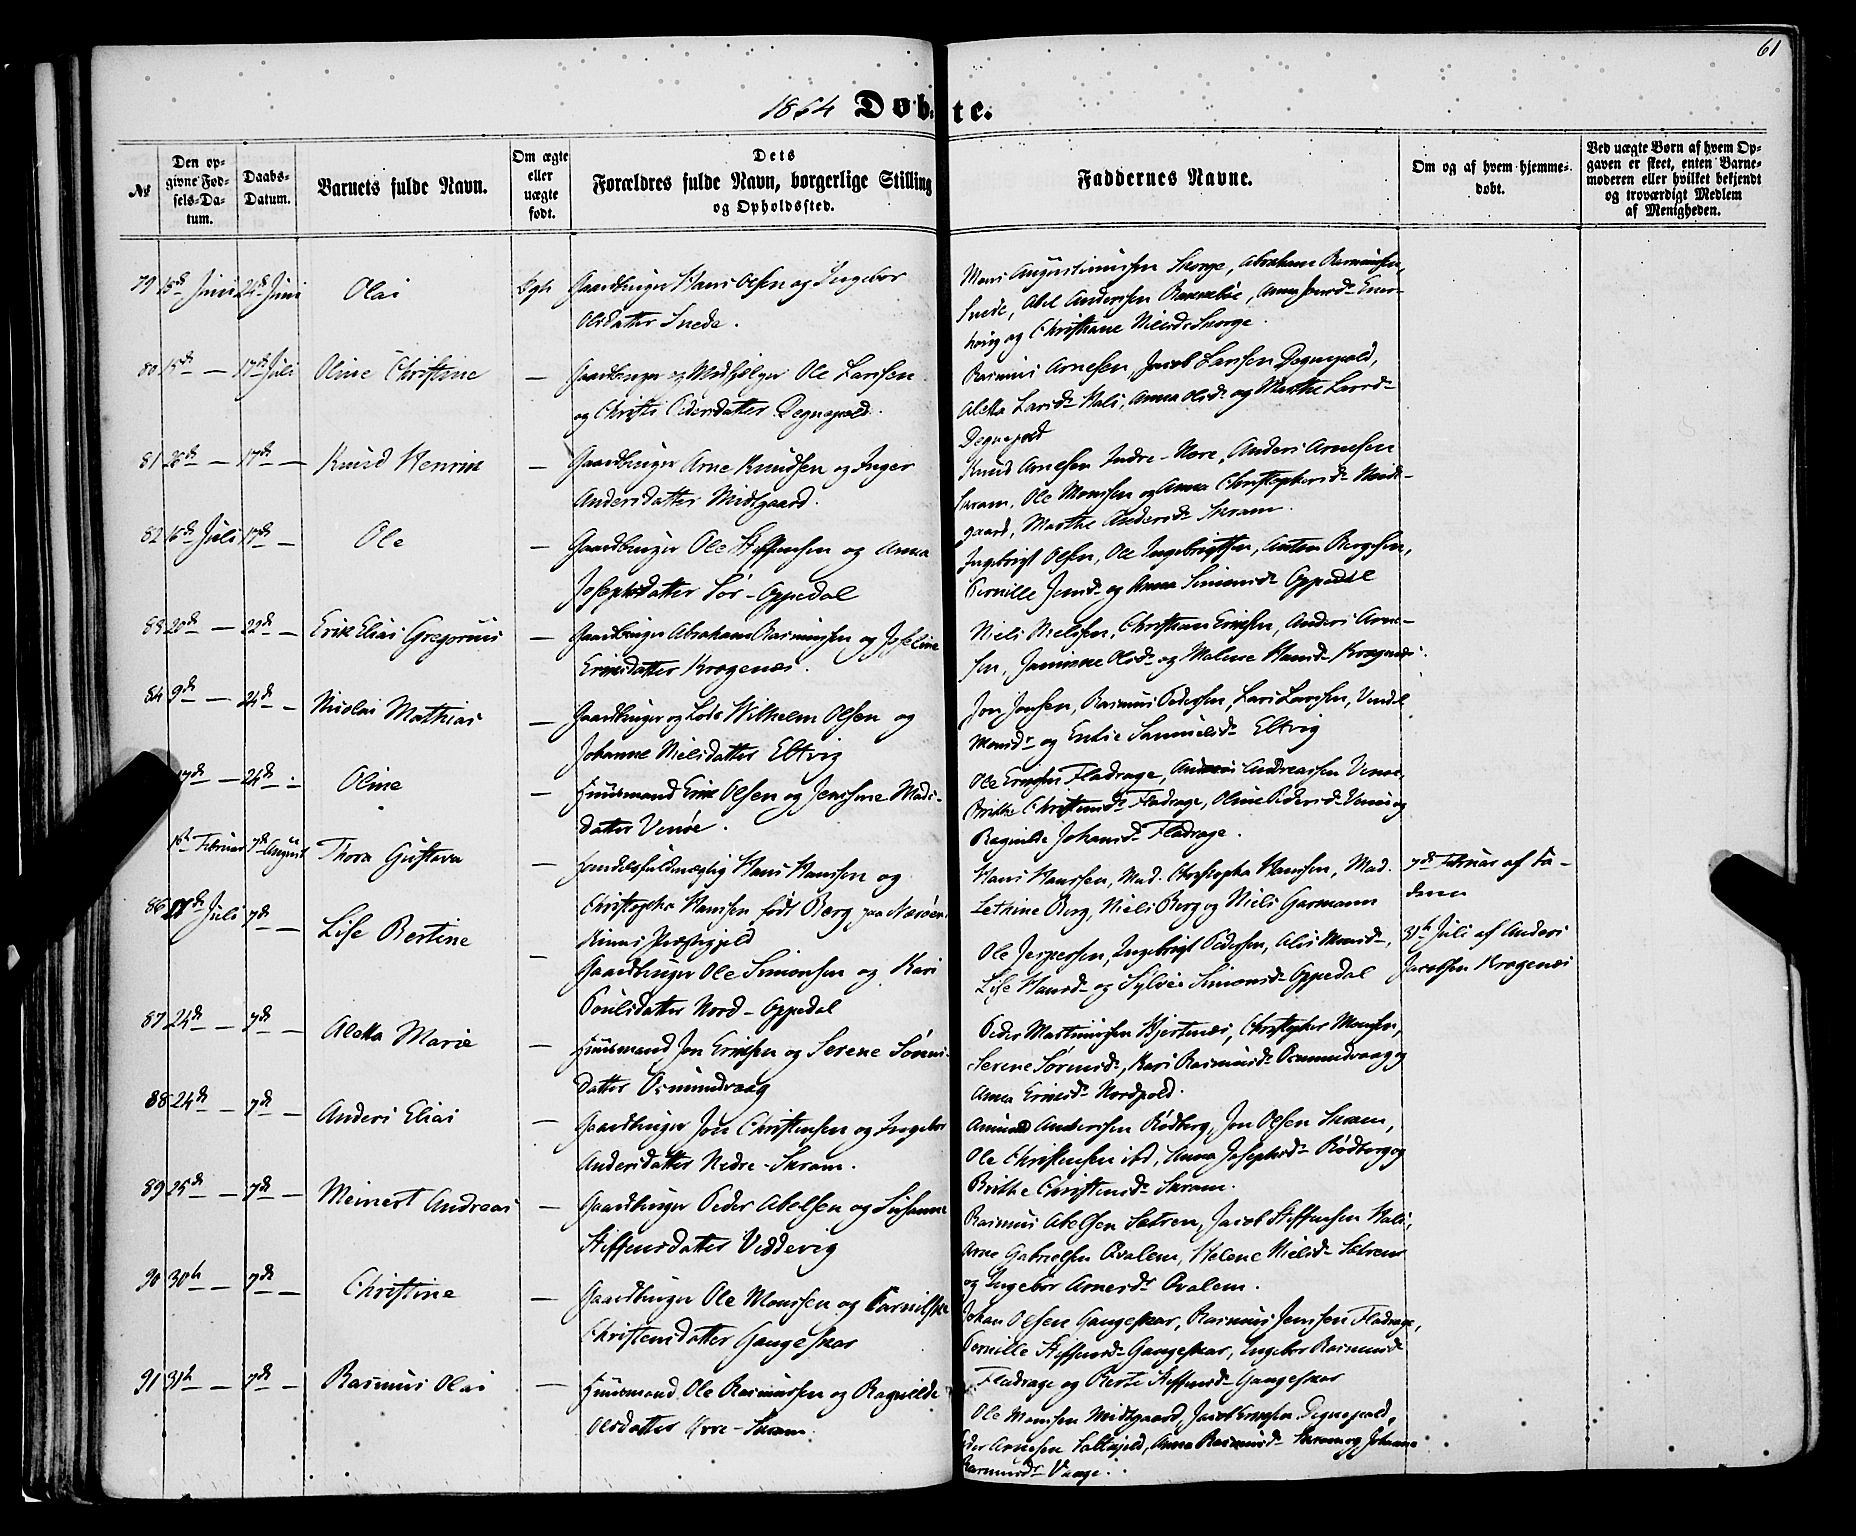 61
1864 Døbte.
№
Den opgivne Fødsels-Datum.
Daabs-Datum.
Barnets fulde Navn.
Om ægte eller uægte født.
Dets Forældres fulde Navn, borgerlige Stilling og Opholdssted.
Faddernes Navne.
Om og af hvem hjemmedøbt.
Ved uægte Børn af hvem Opgaven er skeet, enten Barnemoderen eller hvilket bekjendt og troværdigt Medlem af Menigheden.
79 18de Juni 24de Juni Olai Ægte Gaardbruger Hans Olsen og Ingebor
Olsdatter Svede.
Mons Augustinussen Skorge, Abraham Rasmussen,
Svede, Abel Anderssen, Anna Jensd-
og Christiane Nielsd- Skorge.
80 15de — 17de Juli Oline Christine — Gaardbruger og Ole Larssen
og Christi Pedersdatter Degnepold.
Rasmus Arnesen, Jacob Larssen Degnepold,
Aletta Larsd- Hals, Anna Olsd- og Marthe Larsd-
Degnepold
81 26de — 17de — Knud Henrik — Gaardbruger Arne Knudsen og Inger
Andersdatter Midtgaard.
Knud Arnesen Indre-Nore, Anders Arnesen
Skram, Ole Monssen og Anna Christophersd- Midt-
gaard, Marthe Andersd- Skram.
82 16de Juli 17de — Ole — Gaardbruger Ole Steffensen og Anna
Josephsdatter Sør-Oppedal
Ingebrigt Olsen, Ole Ingebrigtsen, Anton Børgesen,
Pernille Jensd- og Anna Simonsd- Oppedal
83 20de — 22de — Erik Elias Gregorius — Gaardbruger Abraham Rasmussen og Joseline
Eriksdatter Krogenæs.
Niels Nielssen, Christian Erikssen, Anders Arne-
sen, Jannikke Olsd- og Malene Hansd- Krogenæs.
84 9de — 24de — Nicolai Mathias — Gaardbruger og Lods Wilhelm Olsen og
Johanne Nielsdatter Eltvig
Jon Jonsen, Rasmus Pedersen, Lars Larssen,
Monsd- og Enkie Samuelsd- Eltvig
17de — 24de — Oline — Huusmand Erik Olsen og Jensine Mads-
datter Venøe.
Ole Erikssen Fladrage, Andreassen Venøe,
Brithe Christensd- Fladrage, Oline Pedersd- Venøe og
Ragnilde Johansd- Fladrage.
1ste Februar 7de August Thora Gustava — Handelsfuldmægtig Hans Hanssen og
Christopha Hanssen født Berg paa
Kinns Præstegjeld
Hans Hanssen, Mad. Christopha Hanssen, Mad.
Lethine Berg, Niels Berg og Niels Garmann
7de Februar af Fa-
deren
86 Juli 7de — Lise Bertine — Gaardbruger Ole Simonsen og Kari
Poulsdatter Nord-Oppedal
Ole Jespersen, Ingebrigt Pedersen, Alis Monsd-,
Lise Hansd- og Sylvie Simonsd- Oppedal
31te Juli af Anders
Jacobsen Krogenæs
87 24de — 7de — Aletta Marie — Huusmand Jon Eriksen og Serene Sørens-
datter Osmundvaag
Peder Martinussen Hjertenæs, Christopher Monsen,
Serene Sørensd-, Kari Rasmusd- Osmundvaag og
Anna Eriksd- Nordpold.
88 24de — 7de — Anders Elias — Gaardbruger Jon Christensen og Ingebor
Andersdatter Nedre-Skram.
Amund Anderssen Rødberg, Jon Olsen Skram,
Ole Christensen ibd, Anna Josephsd- Rødberg og
Brithe Christensd- Skram.
89 25de — 7de — Meinert Andreas — Gaardbruger Peder Abelsen og Susanne
Steffensdatter Veddevig
Rasmus Abelsen Sætren, Jacob Steffensen Hals,
Arne Gabrielsen Qvalem, Helene Nielsd- Sætren
og Ingebor Arnesd- Qvalem.
90 30te — 7de — Christine — Gaardbruger Ole Monssen og
Christensdatter Gangeskar
Johan Olsen Gangeskar, Rasmus Jenssen Fladrage,
Pernille Steffensd- Gangeskar, Ingebor Rasmusd-
Fladrage og Berte Steffensd- Gangeskar
91 31te — 7de — Rasmus Olai — Huusmand Ole Rasmussen og Ragnilde
Olsdatter Øvre-Skram.
Ole Monsen Midtgaard, Jacob Degnepold,
Peder Arnesen, Anna Rasmusd- Skram og Johanne
Rasmusd- Vaage.